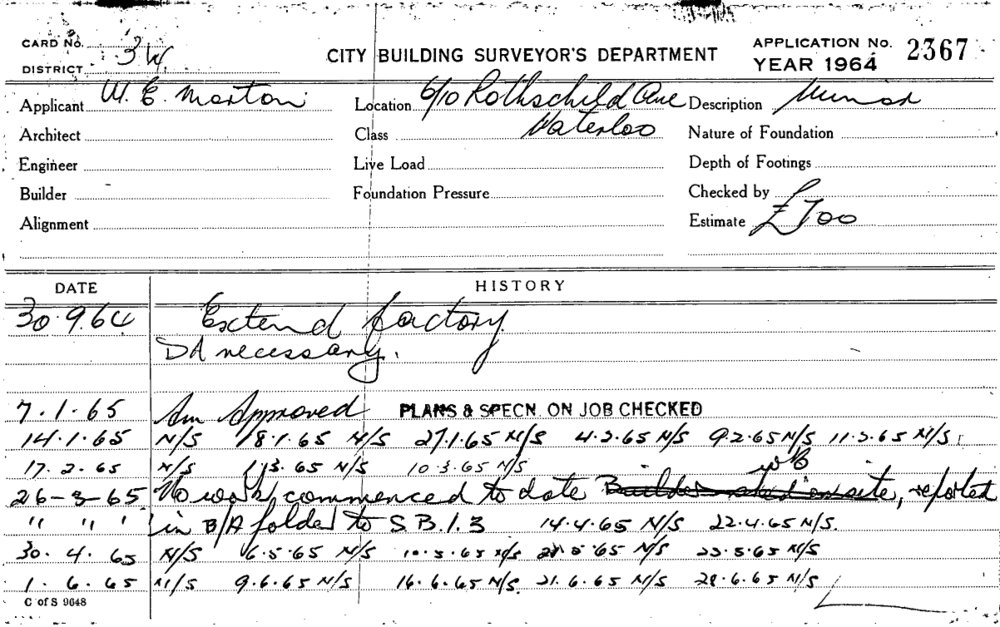 CARD No. CITY BUILDING SURVEYOR'S DEPARTMENT APPLICATION No. 2367
DISTRICT 3W YEAR 1964
Applicant W. E. Morton Location 6/10 Rothschild Ave Description Minor
Architect Class Waterloo Nature of Foundation
Engineer Live Load Depth of Footings
Builder Foundation Pressure Checked by
Alignment Estimate £700
DATE HISTORY
30.9.64 Extend factory
DA necessary.
7.1.65 Approved PLANS & SPECN. ON JOB CHECKED
14.1.65 N/S 18.1.65 N/S 27.1.65 N/S 4.2.65 N/S 9.2.65 N/S 11.2.65 N/S
17.2.65 N/S 1.3.65 N/S 10.3.65 N/S
26-3-65 No work commenced to date Builders shed on site, reported
" " " in B/A folder to S.B.I.3 14.4.65 N/S 22.4.65 N/S.
30.4.65 N/S 6.5.65 N/S 10.5.65 N/S 21.5.65 N/S 25.5.65 N/S
1.6.65 N/S 9.6.65 N/S 16.6.65 N/S 21.6.65 N/S 28.6.65 N/S
C of S 9648